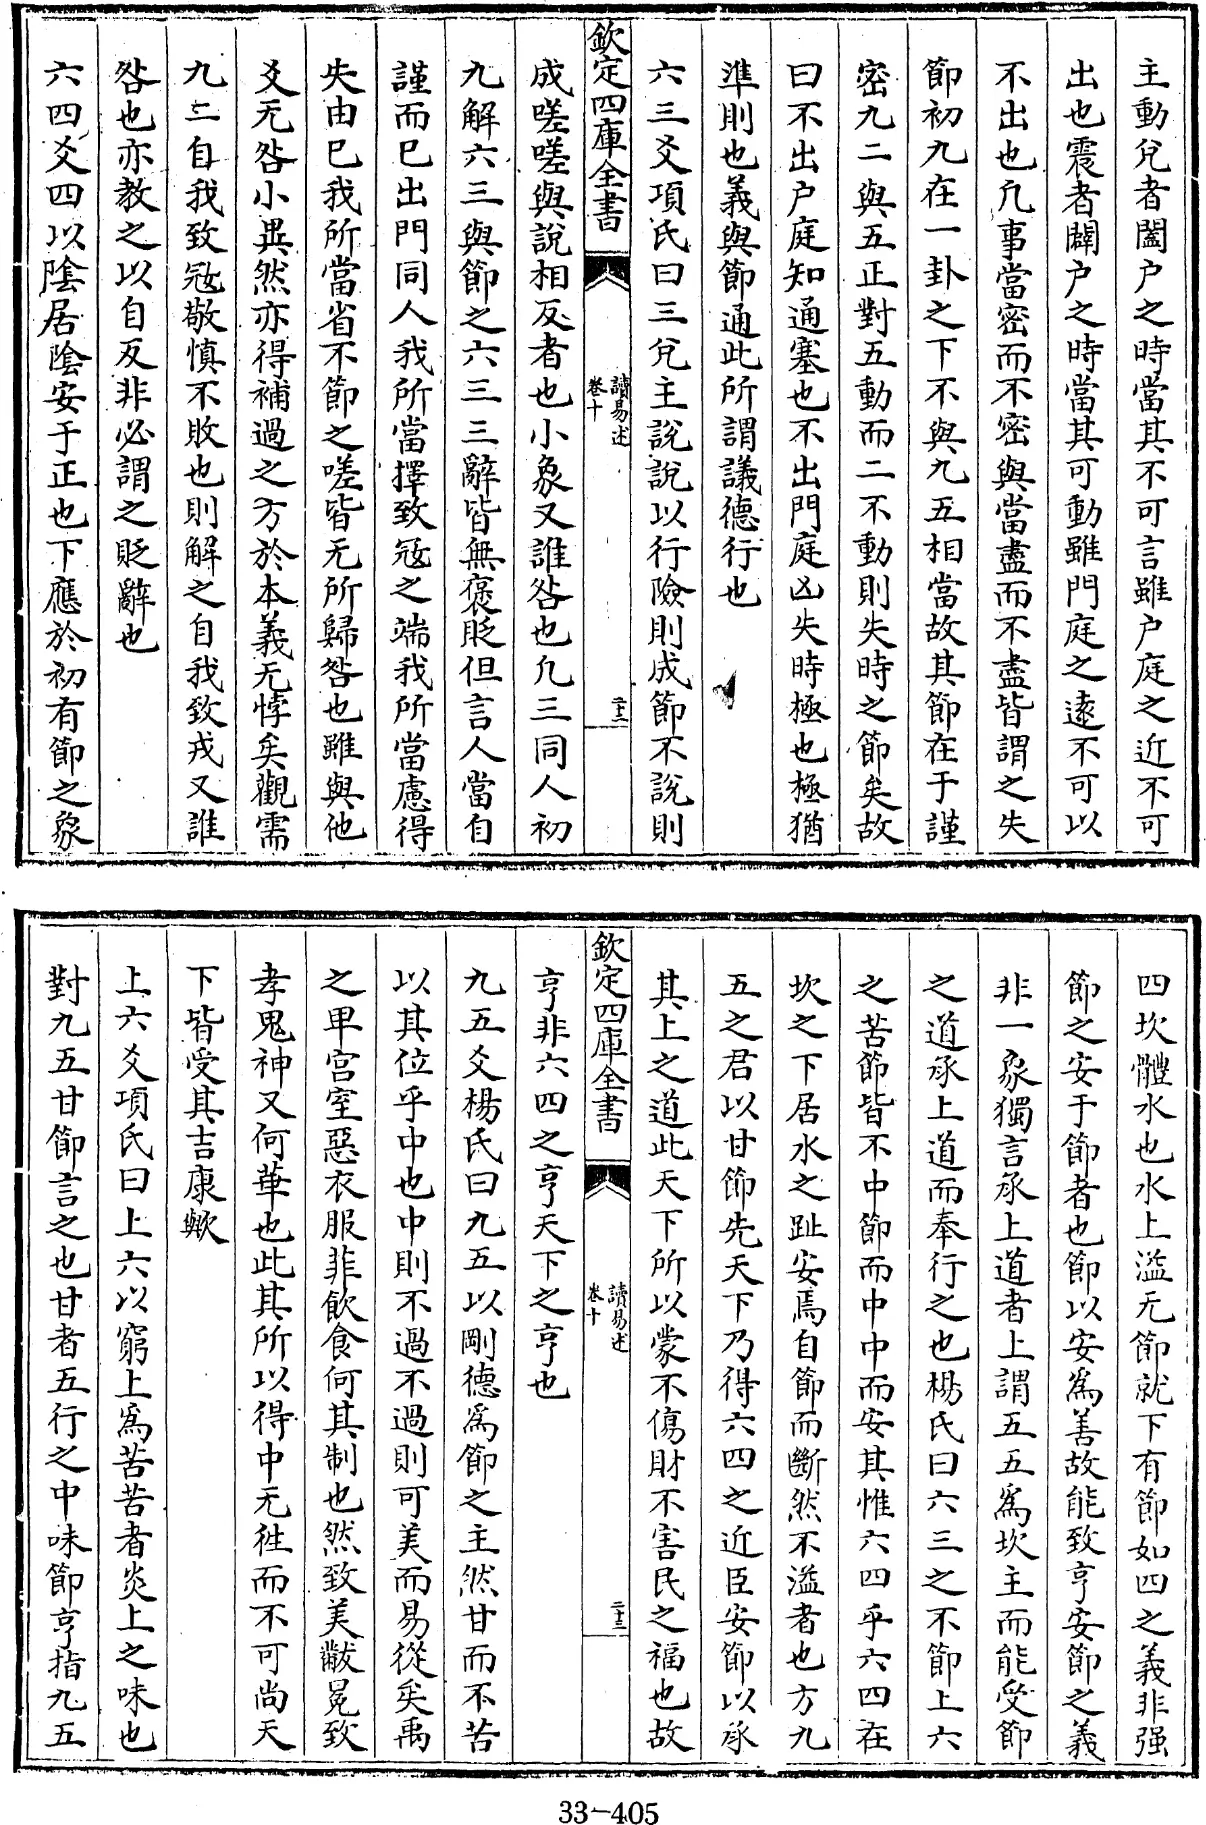 主動兌者闔户之時當其不可言雖户庭之近不可
出也震者闢户之時當其可動雖門庭之遠不可以
不出也凢事當密而不密與當盡而不盡皆謂之失
節初九在一卦之下不與九五相當故其節在于謹
密九二與五正對五動而二不動則失時之節矣故
曰不出户庭知通塞也不出門庭凶失時極也極猶
準則也義與節通此所謂議德行也
六三爻項氏曰三兌主説説以行險則成節不説則
欽定四庫全書
讀易述
卷十
二十三
成嗟嗟與説相反者也小象又誰咎也凢三同人初
九解六三與節之六三三辭皆無褒貶但言人當自
謹而已出門同人我所當擇致冦之端我所當慮得
失由已我所當省不節之嗟皆无所歸咎也雖與他
爻无咎小異然亦得補過之方於本義无悖矣觀需
九三自我致冦敬慎不敗也則解之自我致戎又誰
咎也亦教之以自反非必謂之貶辭也
六四爻四以陰居陰安于正也下應於初有節之象
四坎體水也水上溢无節就下有節如四之義非强
節之安于節者也節以安為善故能致亨安節之義
非一象獨言承上道者上謂五五為坎主而能受節
之道承上道而奉行之也楊氏曰六三之不節上六
之苦節皆不中節而中中而安其惟六四乎六四在
坎之下居水之趾安焉自節而斷然不溢者也方九
五之君以甘節先天下乃得六四之近臣安節以承
其上之道此天下所以蒙不傷財不害民之福也故
欽定四庫全書
讀易述
卷十
二十三
亨非六四之亨天下之亨也
九五爻楊氏曰九五以剛德為節之主然甘而不苦
以其位乎中也中則不過不過則可美而易從矣禹
之卑宫室惡衣服菲飲食何其制也然致美黻冕致
孝鬼神又何華也此其所以得中无徃而不可尚天
下皆受其吉康歟
上六爻項氏曰上六以窮上為苦苦者炎上之味也
對九五甘節言之也甘者五行之中味節亨指九五
33-405